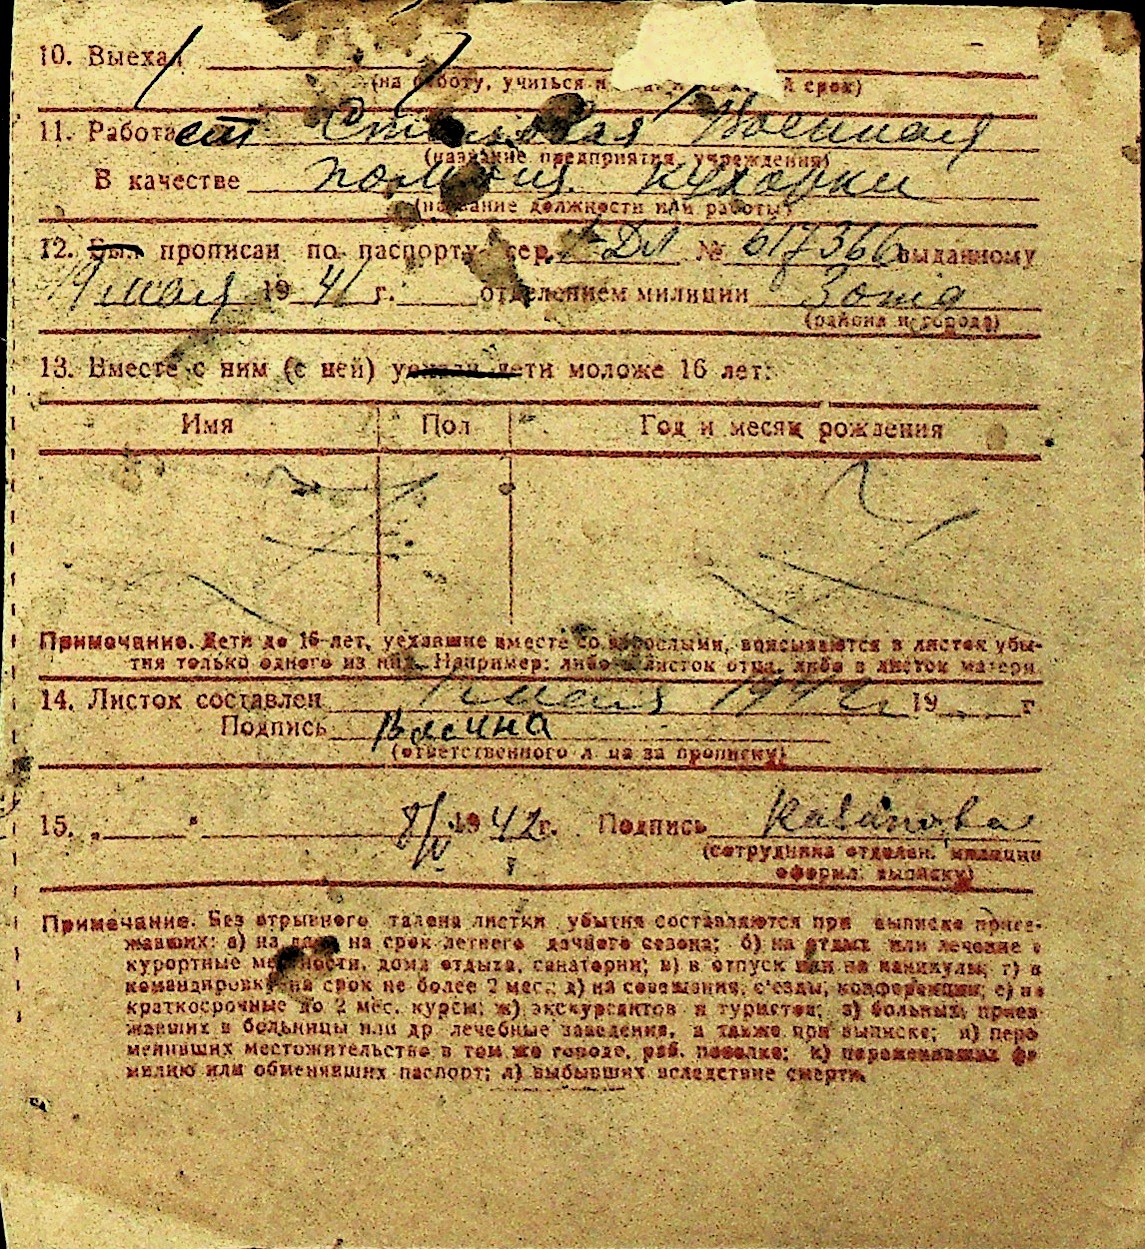 10. Выехал
(на работу, учиться и срок)
11. Работает Столовая Военная
(название предприятия, учреждения)
В качестве помощн. кухарки
(название должности или работы)
12. Был прописан по паспорту сер. № 617366 выданному
19 мая 1941 г. отделением милиции
(района и города)
13. Вместе с ним (с ней) уехали дети моложе 16 лет:
Имя Пол Год и месяц рождения
Примечание. Дети до 16 лет, уехавшие вместе со взрослыми, вписываются в листок убы-
тия только одного из них. Например: либо в листок отца, либо в листок матери.
14. Листок составлен 1 мая 1942 г. 19 г
Подпись
(ответственного лица за прописку)
15. „ " 8/V 1942 г. Подпись
(сотрудника отделен. милиции
оформил. выписку)
Примечание. Без отрывного талона листки убытия составляются при выписке приез-
жавших: а) на дачи на срок летнего дачного сезона; б) на отдых или лечение в
курортные местности, дома отдыха, санатории; в) в отпуск или на каникулы; г) в
командировку на срок не более 2 мес.; д) на совещания, с'езды, конференции; е) на
краткосрочные до 2 мес. курсы; ж) экскурсантов и туристов; з) больных, приез-
жавших в больницы или др лечебные заведения, а также при выписке; и) пере
менивших местожительство в том же городе, раб. поселке; к) переменивших фа
милию или обменявших паспорт; л) выбывших вследствие смерти.